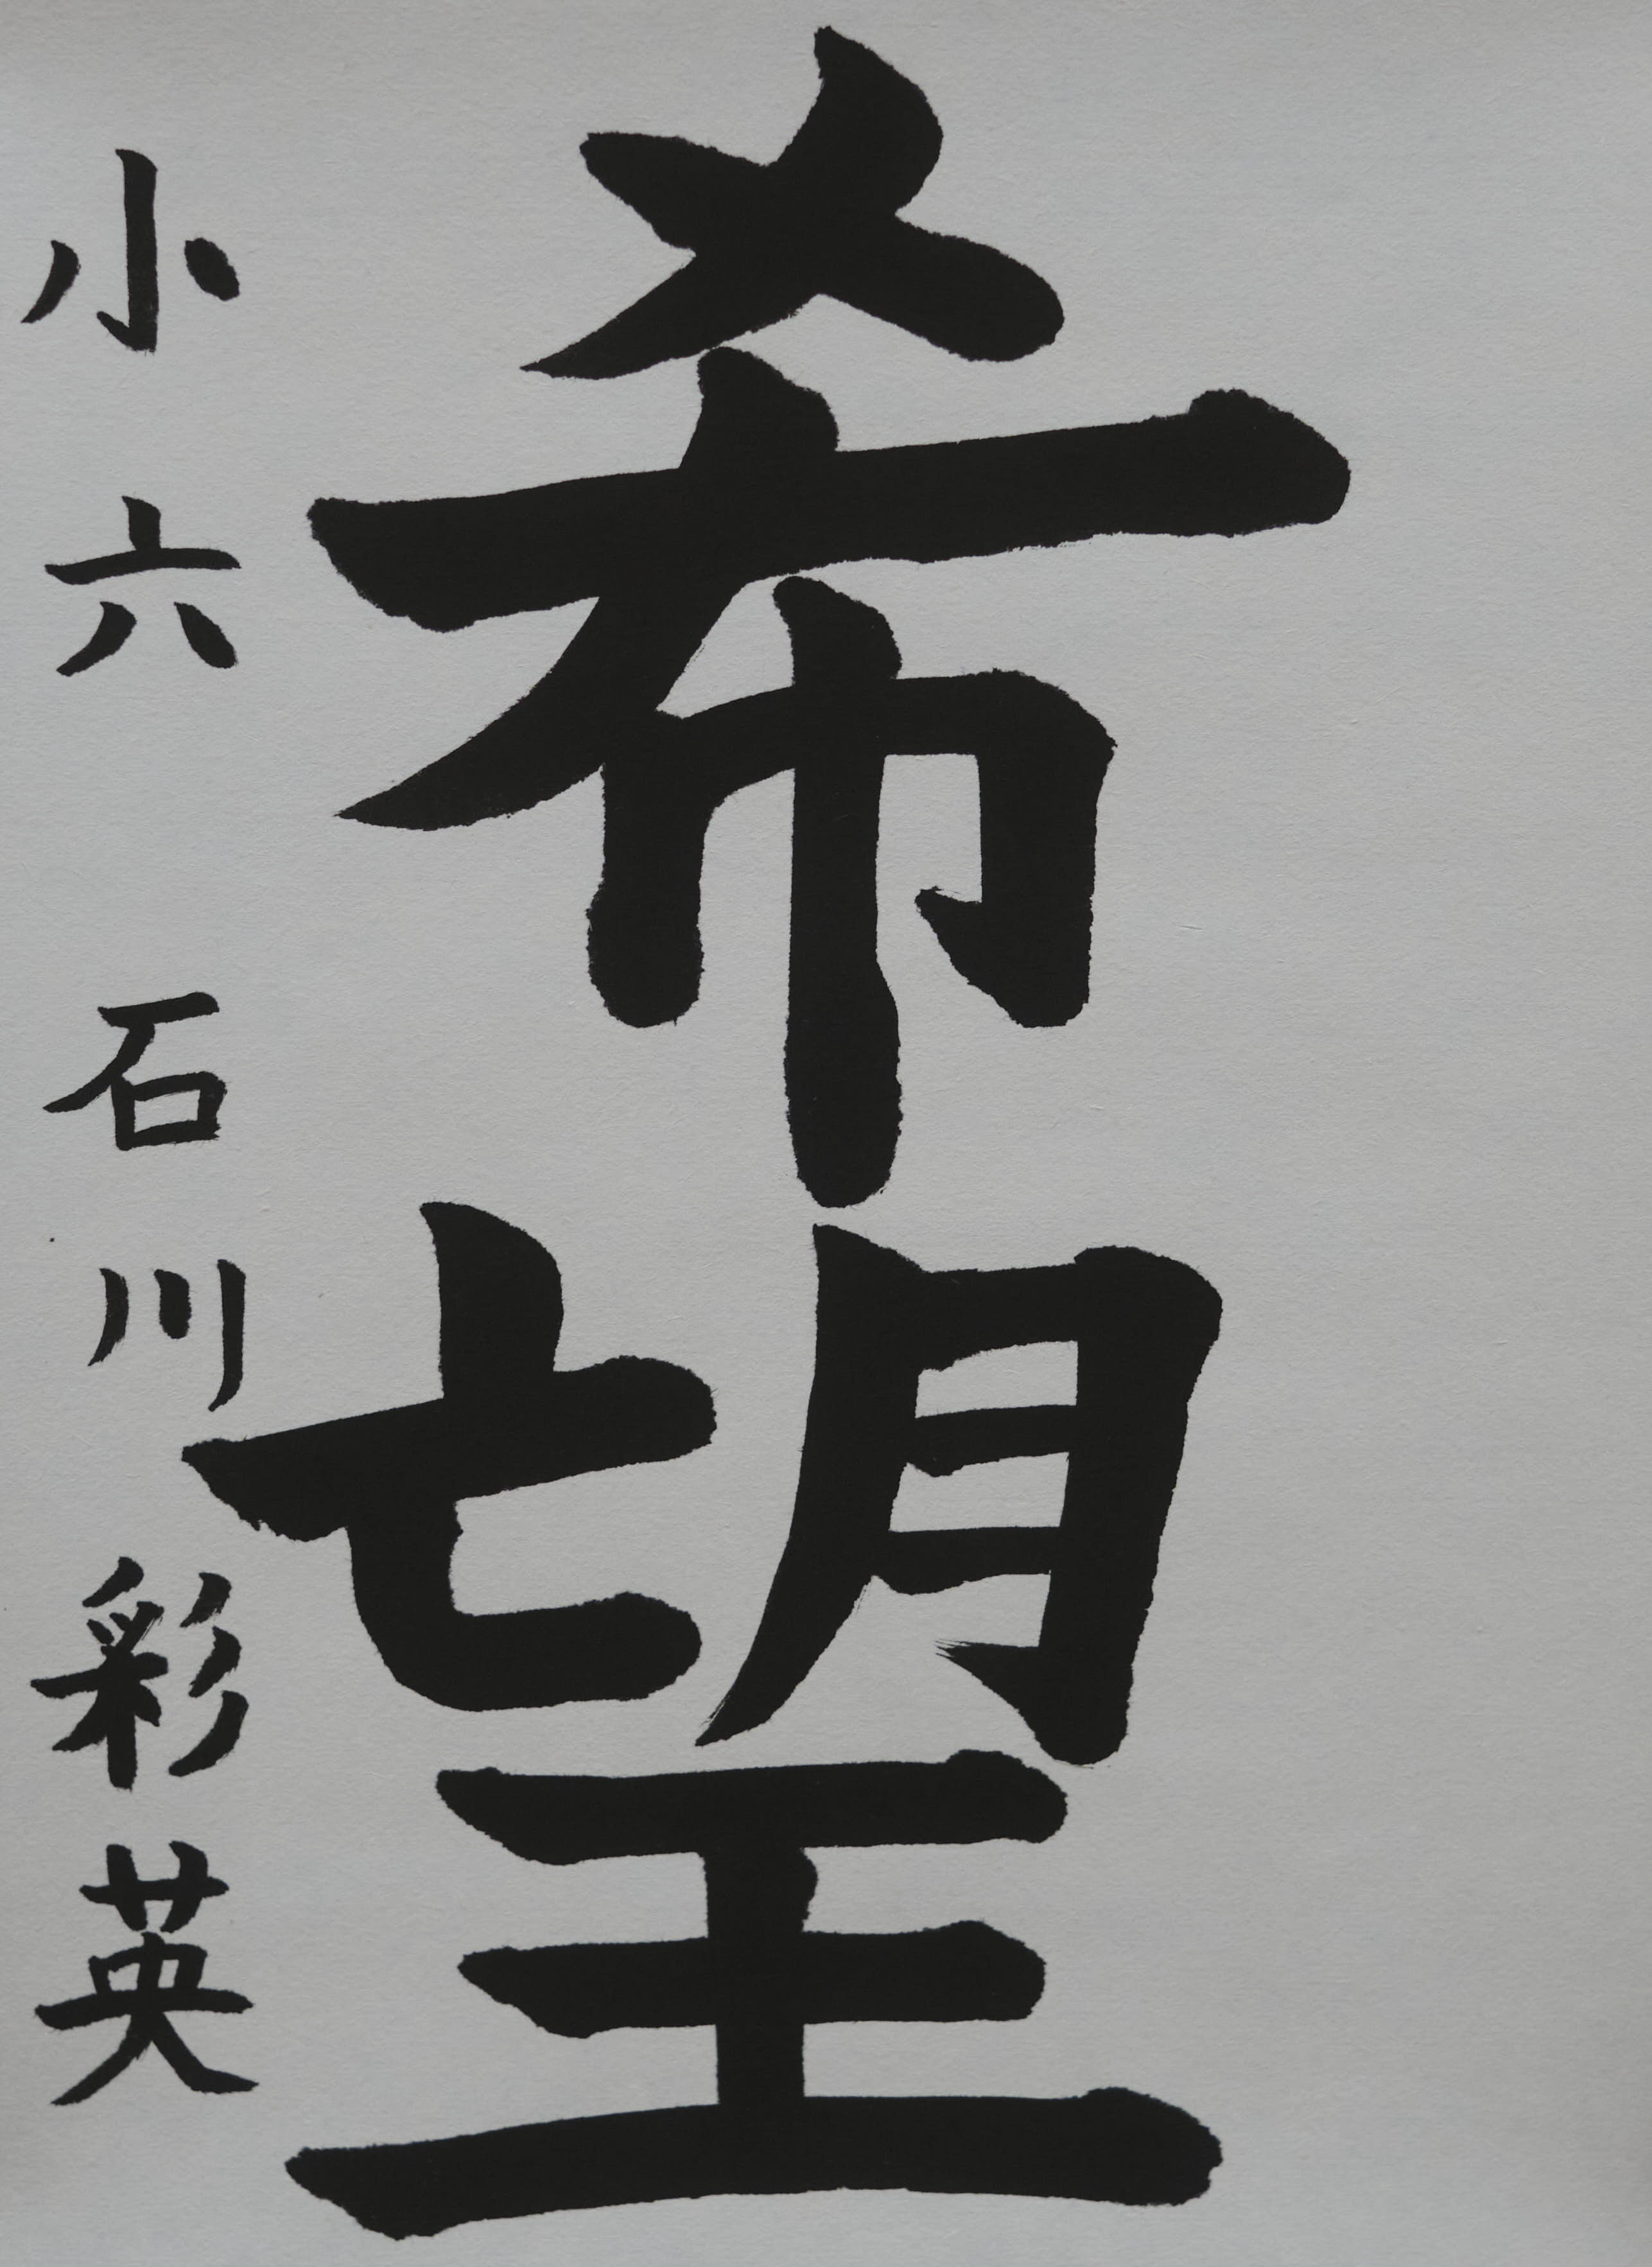 希望
小六 石川彩英